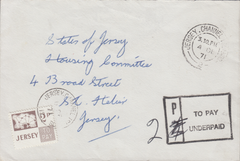 States of Jersey
Housing Committee
4 Broad Street
St. Helier
Jersey.
JERSEY. CHANNEL
71
JERSEY
P
TO PAY
UNDERPAID
2